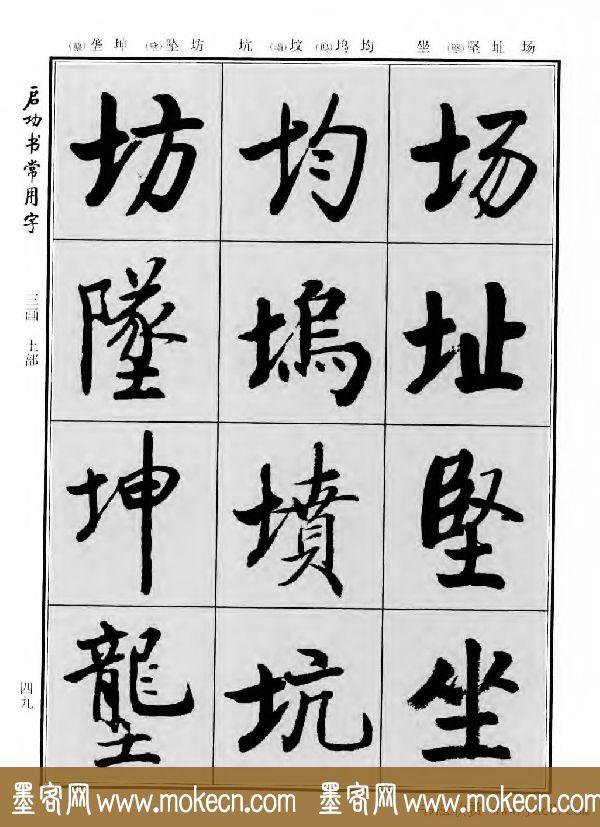 场址坚(堅)坐
均坞(塢)坟(墳)坑
坊坠(墜)坤垄(壟)
启功书常用字
三画 土部
四九
场
址
堅
坐
均
塢
墳
坑
坊
墜
坤
壟
墨客网 www.mokecn.com 墨客网 www.mokecn.com